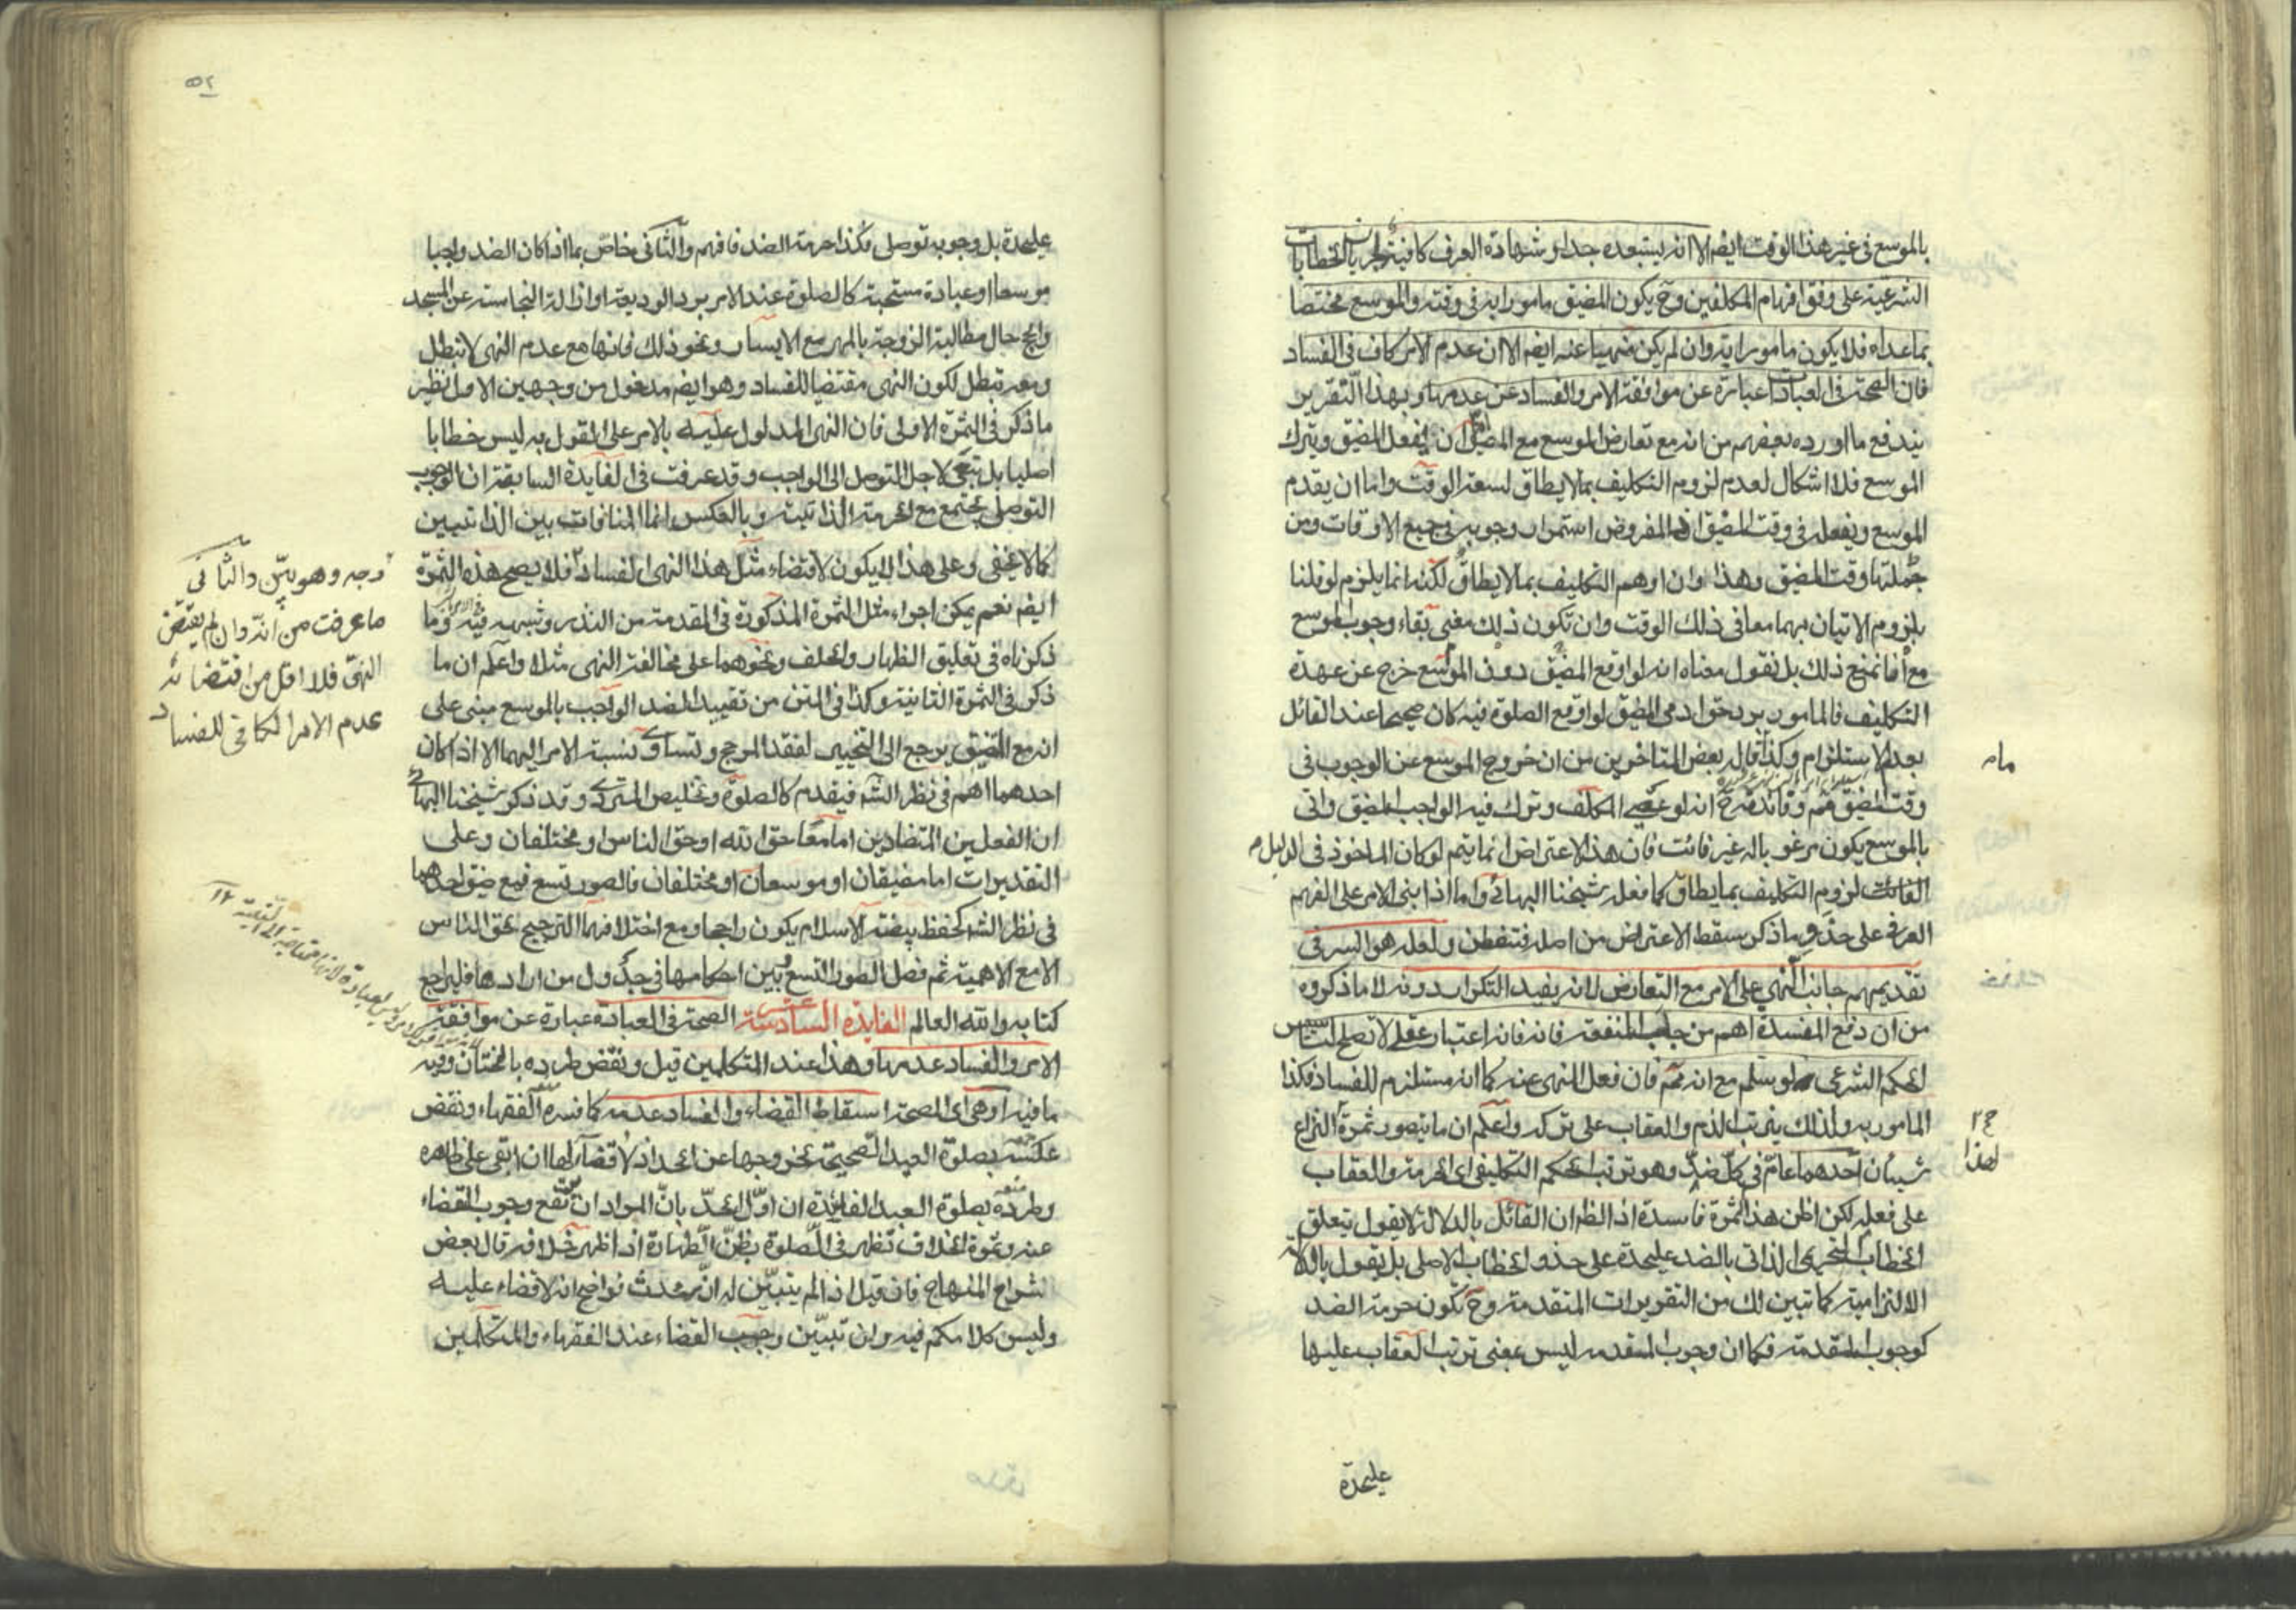 بالموسع في غير هذا الوقت ايضم الا انه يستبعده جدا وشهادة العرف كافية لجريان الخطابات
الشرعية على وفق افهام المكلفين وح يكون المضيق مامورا به في وقته والموسع مختصا
بما عداه فلا يكون مامورا به وان لم يكن منهيا عنه ايضم الا ان عدم الامر كاف في الفساد
فان الصحة في العبادات عبارة عن موافقة الامر والفساد عن عدمها وبهذا التقرير
يندفع ما اورده بعضهم من انه مع تعارض الموسع مع المضيق ان يفعل المضيق ويترك
الموسع فلا اشكال لعدم لزوم التكليف بما لا يطاق لسعة الوقت واما ان يقدم
الموسع ويفعله في وقت المضيق اذ المفروض استمرار وجوبه في جميع الاوقات ومن
جملتها وقت المضيق وهذا وان اوهم التكليف بما لا يطاق لكنه انما يلزم لو قلنا
بلزوم الاتيان بهما معا في ذلك الوقت وان تكون ذلك معنى بقاء وجوب الموسع
مع انا نمنع ذلك بل نقول معناه انه لو اوقع المضيق دون الموسع خرج عن عهدة
التكليف فالمامور برد حق ادمي المضيق لو اوقع الصلوة فيه كان صحيحا عند القائل
بعدم الاستلزام وكذا قال بعض المتاخرين من ان خروج الموسع عن الوجوب في
وقت المضيق مم وفائدته ح انه لو عصى المكلف وترك فيه الواجب المضيق واتى
بالموسع يكون مرغوبا له غير فائت فان هذا الاعتراض انما يتم لو كان الماخوذ في الدليل
الفائت لزوم التكليف بما يطاق كما فعله شيخنا البهائي واما اذا بنى الامر على الفهم
العرفي على حذو ما ذكر سقط الاعتراض من اصله فتفطن ولعله هو السر في
تقديمهم جانب النهي على الامر مع التعارض لانه يفيد التكرار دونه لا ما ذكروه
من ان دفع المفسدة اهم من جلب المنفعة فانه فانه اعتبار عقلي لا تصلح لتاسيس
الحكم الشرعي لو سلم مع انه مم فان فعل المنهي عنه كما انه مستلزم للفساد فكذا
المامور به ولذلك يترتب الذم والعقاب على تركه واعلم ان ما يتصور ثمرة النزاع
شيئان احدهما عام في كل ضد وهو ترتب الحكم التكليفي اي الحرمة والعقاب
على فعله لكن اظن هذا الثمرة فاسدة اذ الظم ان القائل بالدلالة لا يقول بتعلق
الخطاب التحريمي الذاتي بالضد عليحدة على حذو الخطاب الاصلي بل يقول بالدلالة
الالتزامية كما تبين لك من التقريرات المتقدمة وح تكون حرمة الضد
كوجوب المقدمة فكما ان وجوب المقدمة ليس بمعنى ترتب العقاب عليها
عليحدة
٥٢
عليحدة بل وجوبه توصلي فكذا حرمة الضد فافهم والثاني خاص بما اذا كان الضد واجبا
موسعا او عبادة مستحبة كالصلوة عند الامر برد الوديعة او ازالة النجاسة عن المسجد
والحج حال مطالبة الزوجة بالمهر مع الايسار ونحو ذلك فانها مع عدم النهي لا تبطل
ومعه تبطل لكون النهي مقتضيا للفساد وهو ايضم مدخول من وجهين الاول نظير
ما ذكر في الثمرة الاولى فان النهي المدلول عليه بالامر على القول به ليس خطابا
اصليا بل تبعي لاجل التوصل الى الواجب وقد عرفت في الفايدة السابقة ان الوجوب
التوصلي يجتمع مع الحرمة الذاتية وبالعكس انما المنافات بين الذاتيين
كما لا يخفى وعلى هذا لا يكون لاقتضاء مثل هذا النهي الفساد فلا يصح هذه الثمرة
ايضم نعم يمكن اجراء مثل الثمرة المذكورة في المقدمة من النذر وشبهه فيه وما
ذكرناه في تعليق الظهار والحلف ونحوهما على مخالفة النهي مثلا واعلم ان ما
ذكر في الثمرة الثانية وكذا في المتن من تقييد الضد الواجب بالموسع مبني على
انه مع المضيق يرجع الى التخيير لفقد المرجح وتساوي نسبة الامر اليهما الا اذا كان
احدهما اهم في نظر الشم فيقدم كالصلوة وتخليص المتردي وقد ذكر شيخنا البهائي
ان الفعلين المتضادين اما معا حق الله او حق الناس او مختلفان وعلى
التقديرات اما مضيقان او موسعان او مختلفان فالصور تسع فمع ضيق احدهما
في نظر الشم كحفظ بيضة الاسلام يكون راجحا ومع اختلافهما الترجيح لحق الناس
الا مع الاهمية ثم فصل الصور التسع وبين احكامها في جدول من ارادها فليراجع
كتابه والله العالم الفايدة السادسة عشر الصحة في العبادة عبارة عن موافقة
الامر والفساد عدمها وهذا عند المتكلمين قيل ونقض طرده بالختان وفيه
ما فيه او هي اي الصحة اسقاط القضاء والفساد عدمه كما فسره الفقهاء ونقض
عكسه بصلوة العيد الصحيحة لخروجها عن الحد اذ لا قضاء لها ان ابقى على ظاهره
وطرده بصلوة العيد الفاسدة ان اول الحد بان المراد ان يقع وجوب القضاء
عنه وثمرة الخلاف تظهر في الصلوة بظن الطهارة اذا ظهر خلافه قال بعض
شراح المنهاج فان قيل اذا لم يتبين له انه محدث فواضح انه لا قضاء عليه
وليس كلامكم فيه وان تبين وجب القضاء عند الفقهاء والمتكلمين
وجه وهو بين والثاني
ما عرفت من انه وان لم يقتض
النهي فلا اقل من اقتضائه
عدم الامر الكافي للفساد